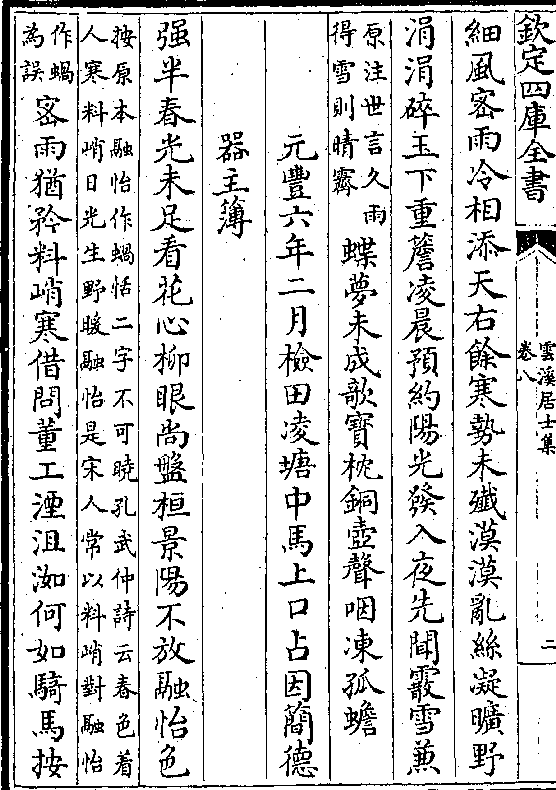 欽定四庫全書
雲溪居士集
卷八
二
細風宻雨冷相添天右餘寒勢未殱漠漠亂絲凝曠野
涓涓碎玉下重簷凌晨預約陽光發入夜先聞霰雪兼
原注世言久雨
得雪則晴霽
蝶夢未成歌寳枕銅壺聲咽凍孤蟾
元豐六年二月檢田凌塘中馬上口占因簡德
器主簿
强半春光未足看花心柳眼尚盤桓景陽不放融怡色
按原本融怡作蝸恬二字不可曉孔武仲詩云春色着
人寒料峭日光生野暖融怡是宋人常以料峭對融怡
作蝸
為誤
宻雨猶矜料峭寒借問董工湮沮洳何如騎馬按